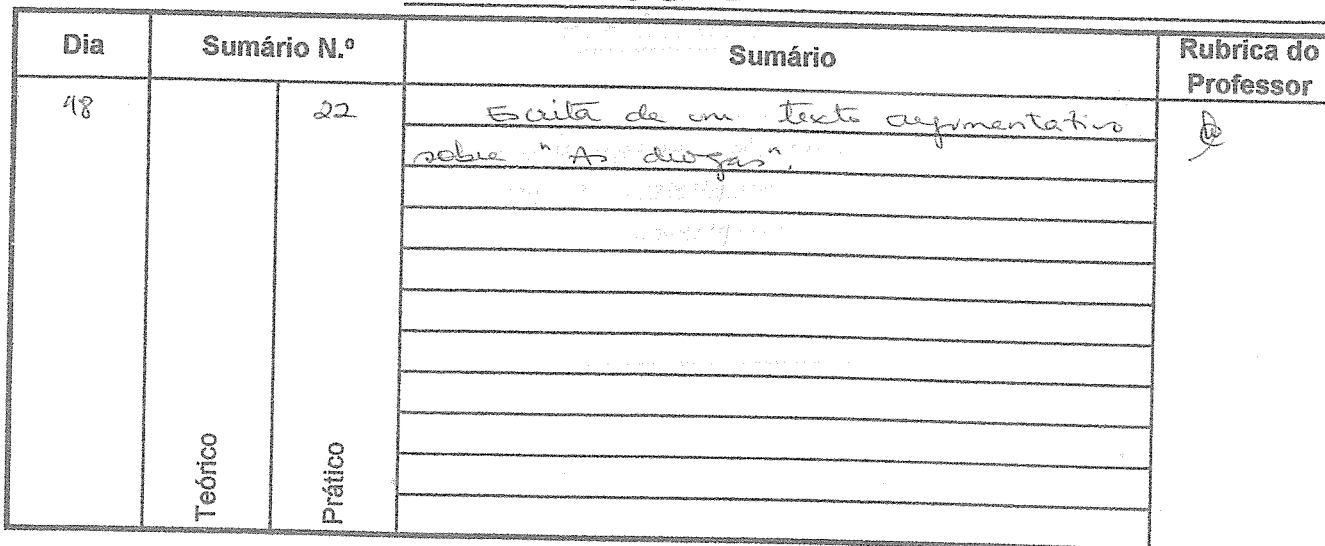 Dia Sumário N.º Sumário Rubrica do Professor
18 22 Escrita de um texto argumentativo
sobre "As drogas".
Teórico Prático